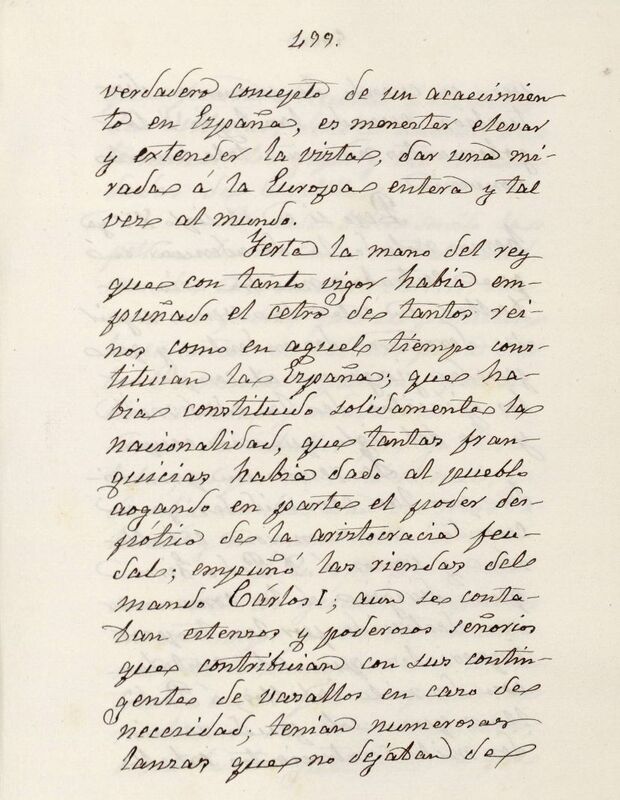 499.
verdadero concepto de un acaecimien-
to en España, es menester elevar
y extender la vista, dar una mi-
rada á la Europa entera y tal
vez al mundo.
Yerta la mano del rey
que con tanto vigor habia em-
puñado el cetro de tantos rei-
nos como en aquel tiempo cons-
tituian la España; que ha-
bia constituido solidamente la
nacionalidad, que tantas fran-
quicias habia dado al pueblo
aogando en parte el poder des-
pótico de la aristocracia feu-
dal; empuñó las riendas del
mando Cárlos I; aun se conta-
ban estensos y poderosos señorios
que contribuian con sus contin-
gentes de vasallos en caso de
necesidad; tenian numerosas
lanzas que no dejaban de